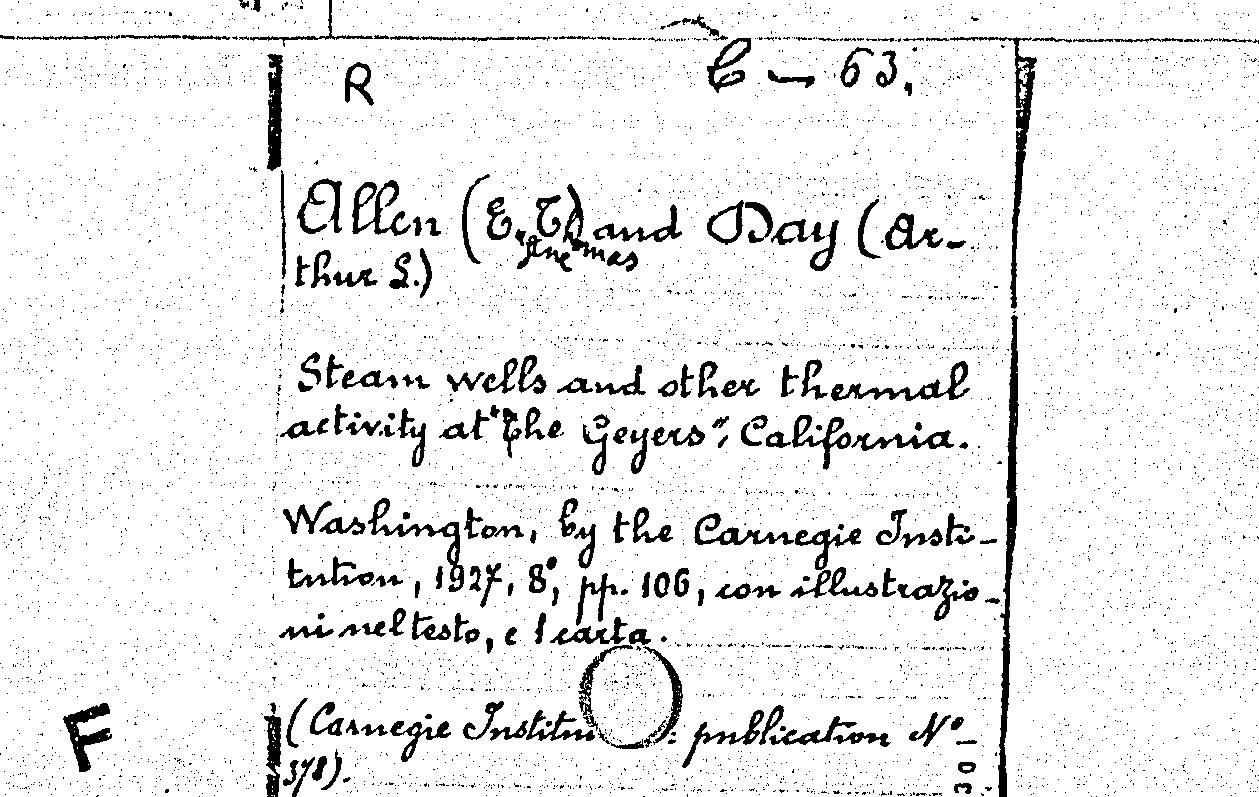 R
C - 63.
Allen (E. T.) and Day (Ar-
thur L.)
Steam wells and other thermal
activity at "The Geyers", California.
Washington, by the Carnegie Insti-
tution, 1927, 8°, pp. 106, con illustrazio-
ni nel testo, e 1 carta.
(Carnegie Institu : publication N°-
378).
F
30